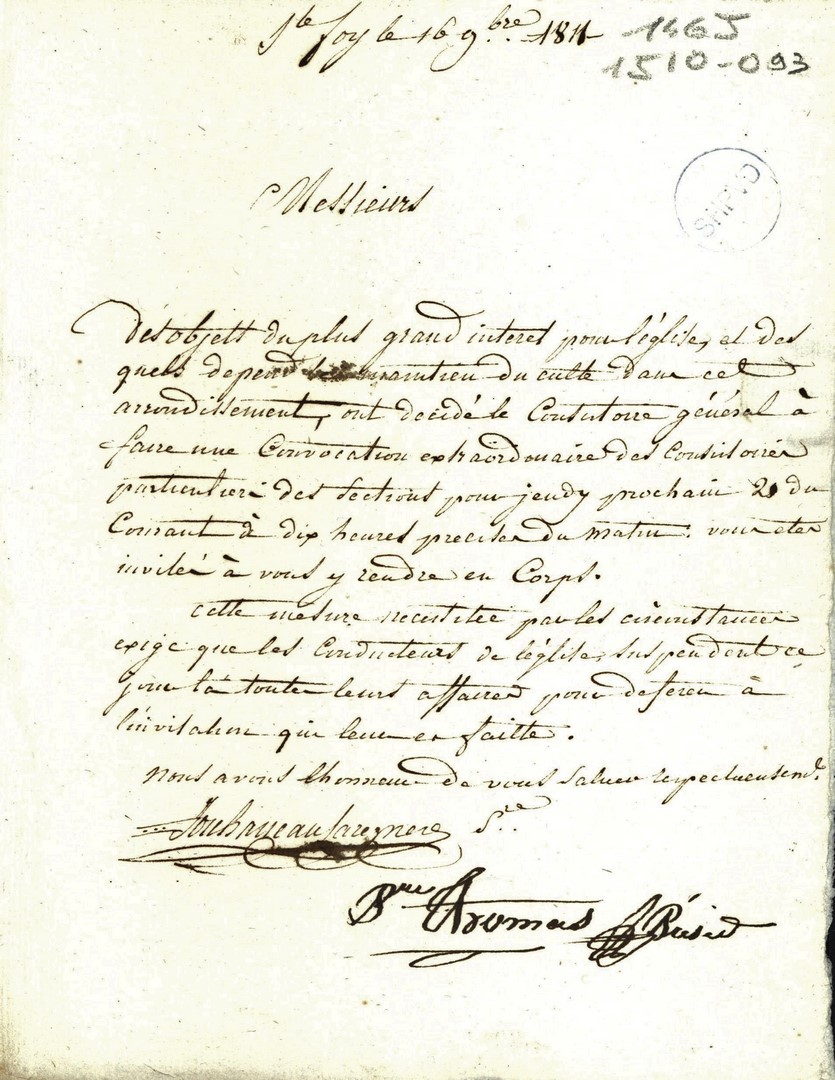 Ste foy le 16 9bre 1811
1465
1510-093
SHPVD
Messieurs
Des objett du plus grand interet pour l'église, et des
quels depend le maintien du culte dans cet
arrondissement, ont decidé le Consistoire général à
faire une Convocation extraordinaire des Consistoires
particuliers des sections pour jeudy prochain 21 du
Courant à dix heures precises du matin: vous etes
invités à vous y rendre en Corps.
cette mesure necessitée par les circonstances
exige que les Conducteurs de l'église, suspendent ce
jour là toutes leurs affaires pour deferer à
l'invitation qui leur es faitte.
Nous avons lhonneur de vous saluer respectueusemt.
Sre
Bre Thomas Présid